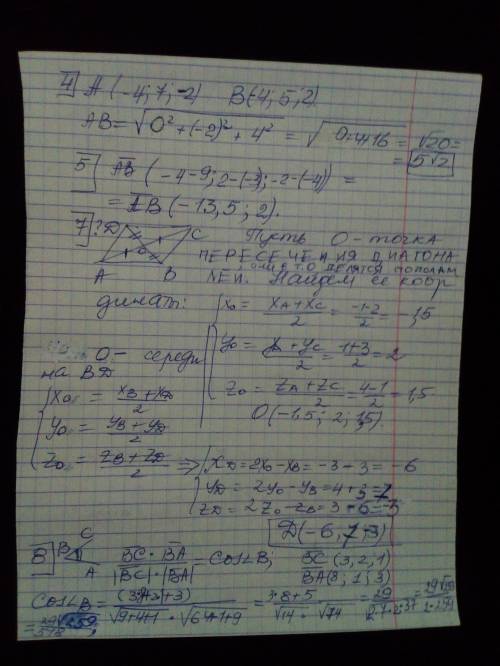 4] A (-4; 7; -2) B(-4; 5; 2)
AB = √(0² + (-2)² + 4²) = √(0+4+16) = √20 =
= 5√2
5] AB (-4-9; 2-(-3); -2-(-4)) =
= AB (-13, 5; 2).
7] ? D C Пусть O - точка
пересечения диагона
A B лей. Найдем ее коор
динаты:
x₀ = (xA + xC)/2 = (-1-2)/2 = -1,5
y₀ = (yA + yC)/2 = (1+3)/2 = 2
z₀ = (zA + zC)/2 = (4-1)/2 = 1,5
O(-1,5; 2; 1,5).
O - середи
на BD
x₀ = (xB + xD)/2
y₀ = (yB + yD)/2
z₀ = (zB + zD)/2 ⇒
xD = 2x₀ - xB = -3 - 3 = -6
yD = 2y₀ - yB = 4 + 3 = 7
zD = 2z₀ - zB = 3 - 6 = -3
D(-6, 7, -3)
8] B C A (BC · BA)/(|BC|·|BA|) = cos∠B; BC (3, 2, 1)
BA (8; 1; 3)
cos∠B = /(√(9+4+1) · √(64+1+9)) = (3·8+5)/(√14 · √74) = 29/